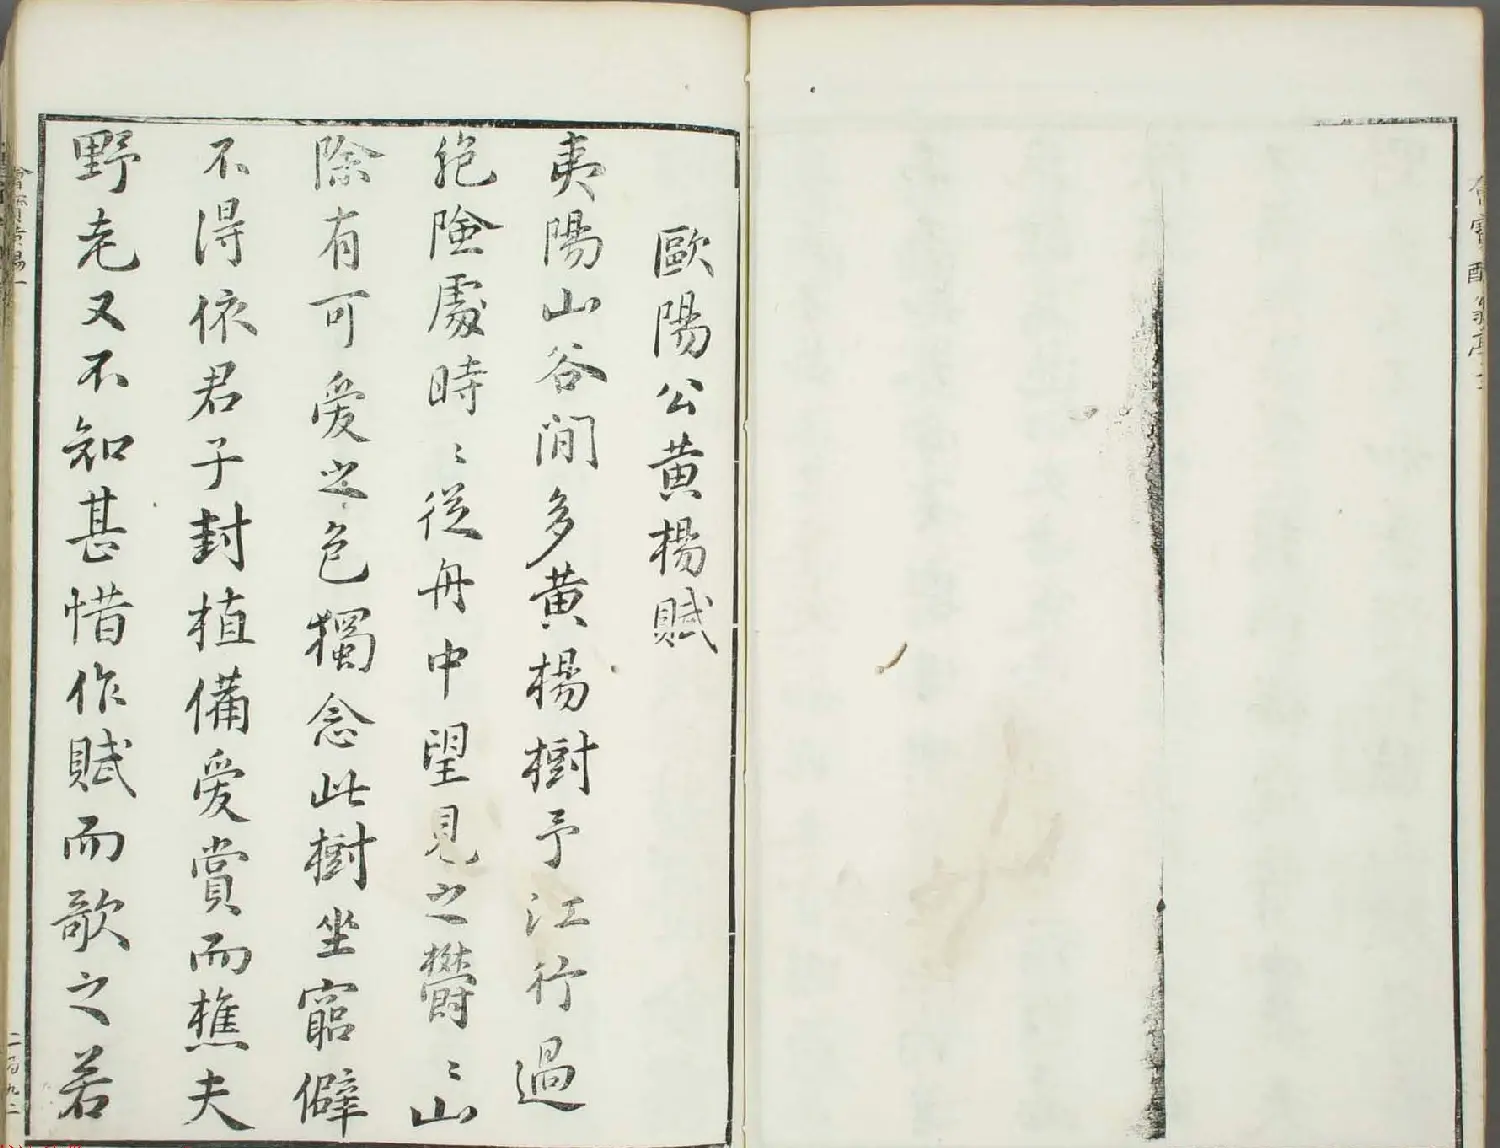 歐陽公黃楊賦
夷陽山谷間多黃楊樹予江行過
絶險處時〻從舟中望見之鬱〻山
除有可愛之色獨念此樹坐窮僻
不得依君子封植備愛賞而樵夫
野老又不知甚惜作賦而歌之若